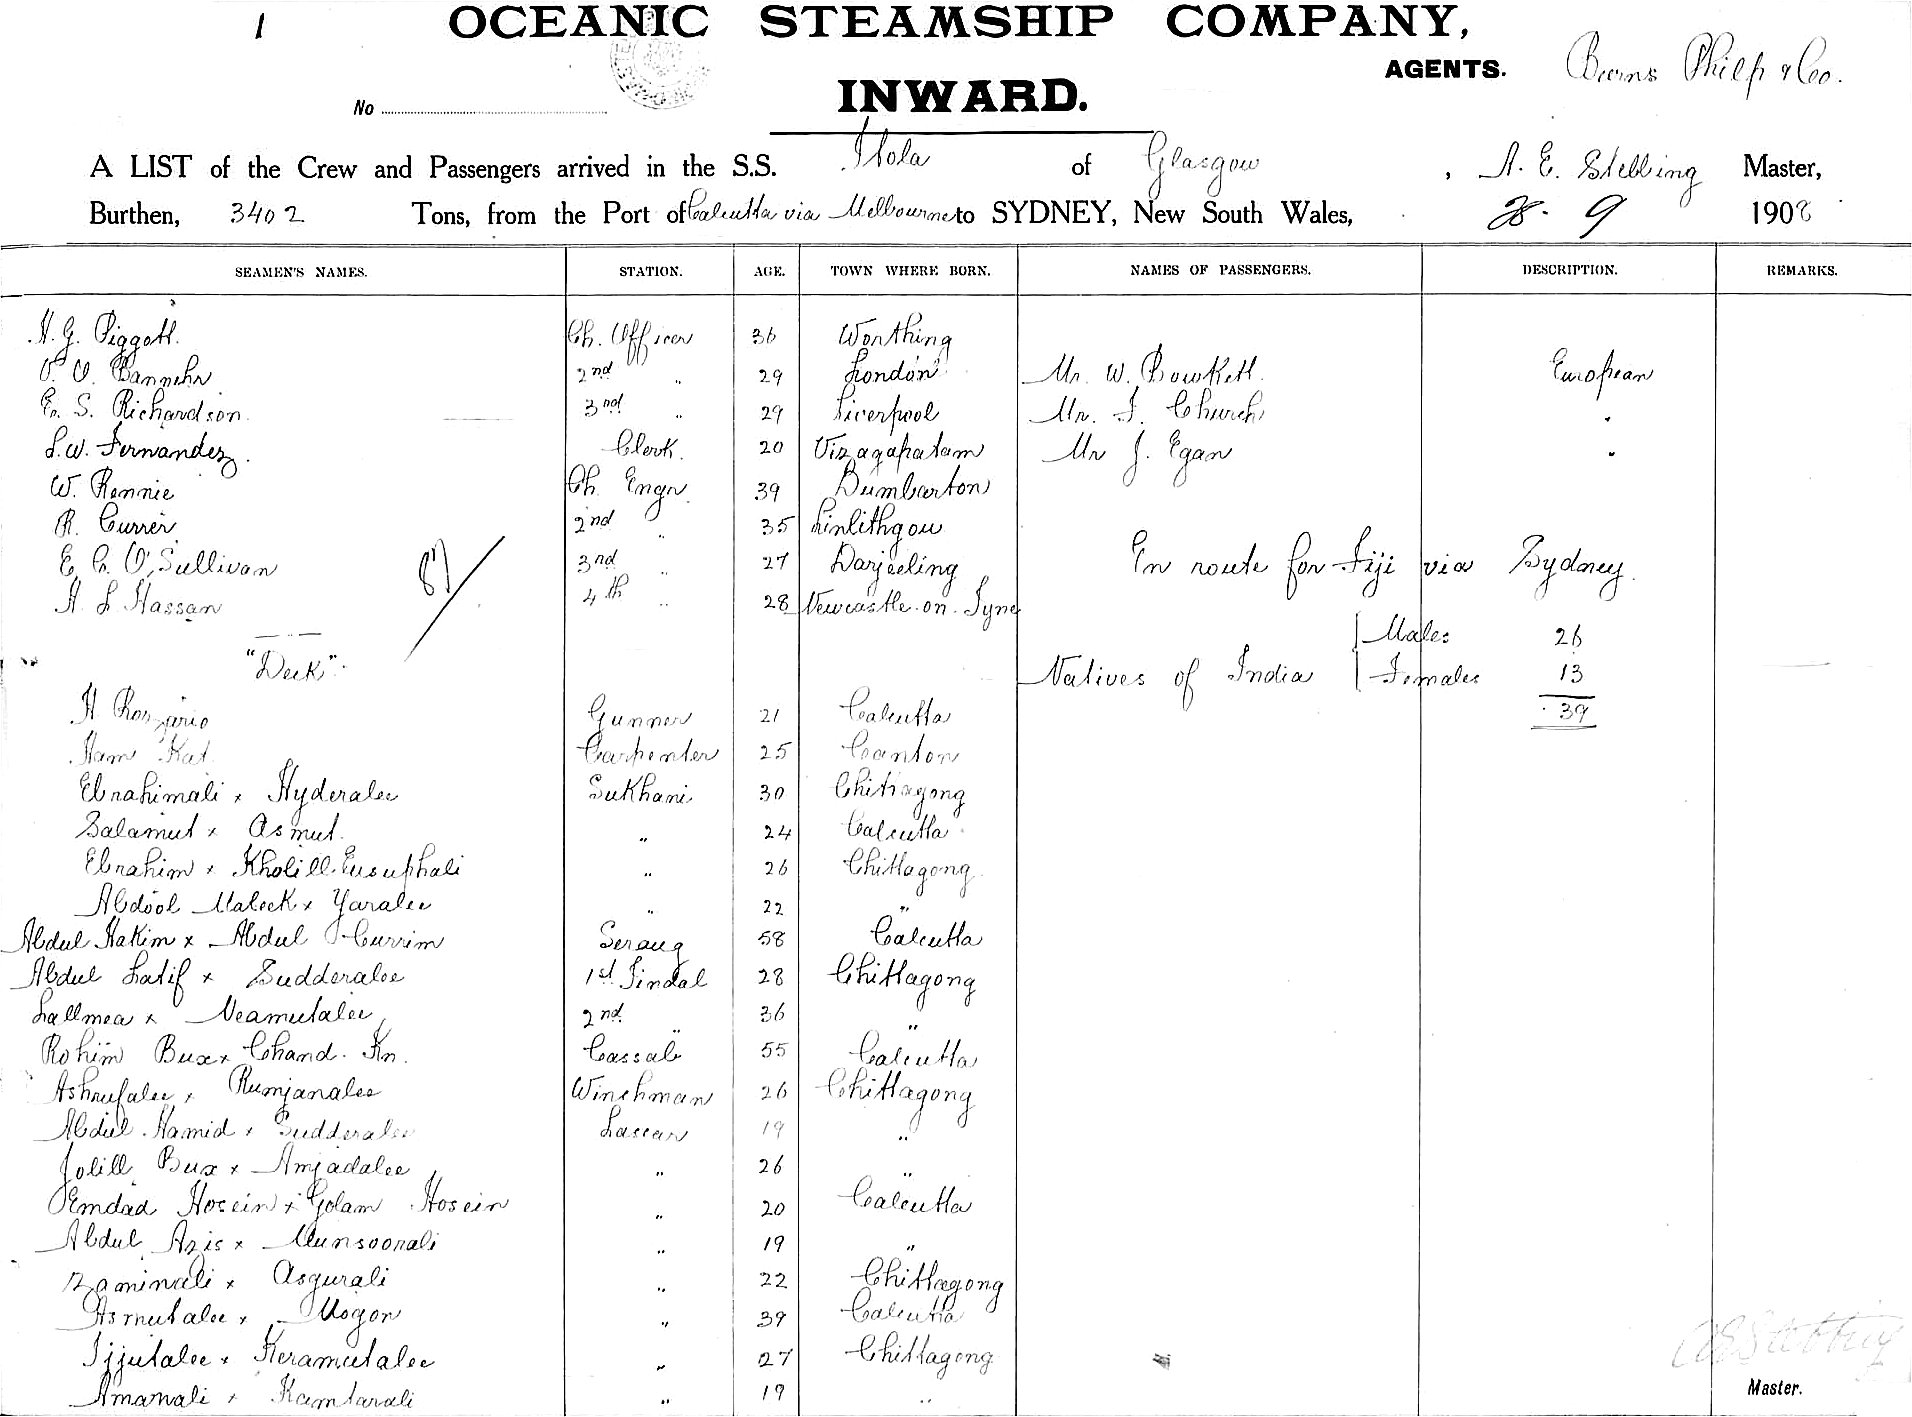 1
OCEANIC STEAMSHIP COMPANY,
AGENTS. Burns Philp & Co.
INWARD.
No
A LIST of the Crew and Passengers arrived in the S.S. Itola of Glasgow, A. E. Stebbing Master,
Burthen, 3402 Tons, from the Port of Calcutta via Melbourne to SYDNEY, New South Wales, 28. 9 1908
SEAMEN'S NAMES. STATION. AGE. TOWN WHERE BORN. NAMES OF PASSENGERS. DESCRIPTION. REMARKS.
H. G. Piggott. Ch. Officer 36 Worthing
Bannehr 2nd " 29 London Mr. W. Bowkett. European
S. Richardson. 3rd " 29 Liverpool Mr. F. Church "
S. W. Fernandez. Clerk. 20 Vizagapatam Mr J. Egan "
W. Rennie Ch. Engr 39 Dumbarton
R. Currer 2nd " 35 Linlithgow
E. C. O'Sullivan 3rd " 27 Darjeeling En route for Fiji via Sydney.
87/
H. L. Hassan 4th " 28 Newcastle-on-Tyne
Males 26
"Deck" Natives of India Females 13
39
H Rozario Gunner 21 Calcutta
Ham Kat Carpenter 25 Canton
Ebrahimali x Hyderalee Sukhani 30 Chittagong
Salamut x Asmut. " 24 Calcutta
Ebrahim x Kholill Eusuphali " 26 Chittagong
Abdool Maleek x Yaralee " 22 "
Abdul Hakim x Abdul Currim Serang 58 Calcutta
Abdul Latif x Sudderalee 1st Tindal 28 Chittagong
Lallmea x Neamutalee 2nd " 36 "
Rohim Bux x Chand. Kn. Cassab 55 Calcutta
Ashrufalee x Rumjanalee Winchman 26 Chittagong
Abdul Hamid x Sudderalee Lascar 19 "
Jolill Bux x Amjadalee " 26 "
Emdad Hosein x Golam Hosein " 20 Calcutta
Abdul Azis x Munsoorali " 19 "
Zaminali x Asgurali " 22 Chittagong
Asmutalee x Mogon " 39 Calcutta
Ijjutalee x Keramutalee " 27 Chittagong
Amanali x Kamtarali " 19 "
A E Stebbing
Master.